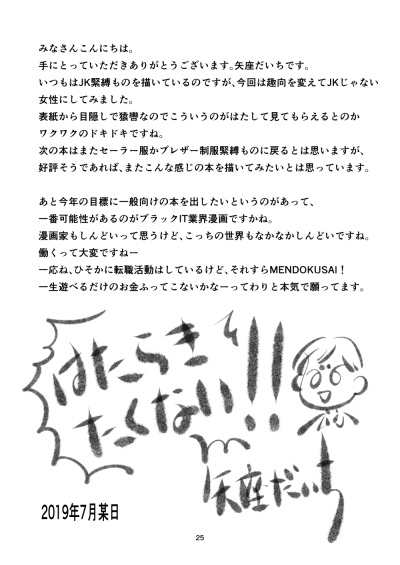 みなさんこんにちは。
手にとっていただきありがとうございます。矢座だいちです。
いつもはJK緊縛ものを描いているのですが、今回は趣向を変えてJKじゃない
女性にしてみました。
表紙から目隠しで猿轡なのでこういうのがはたして見てもらえるとのか
ワクワクのドキドキですね。
次の本はまたセーラー服かブレザー制服緊縛ものに戻るとは思いますが、
好評そうであれば、またこんな感じの本を描いてみたいとは思っています。
あと今年の目標に一般向けの本を出したいというのがあって、
一番可能性があるのがブラックIT業界漫画ですかね。
漫画家もしんどいって思うけど、こっちの世界もなかなかしんどいですね。
働くって大変ですねー
一応ね、ひそかに転職活動はしているけど、それすらMENDOKUSAI！
一生遊べるだけのお金ふってこないかなーってわりと本気で願ってます。
はたらき
たくない!!
矢座だいち
2019年7月某日
25